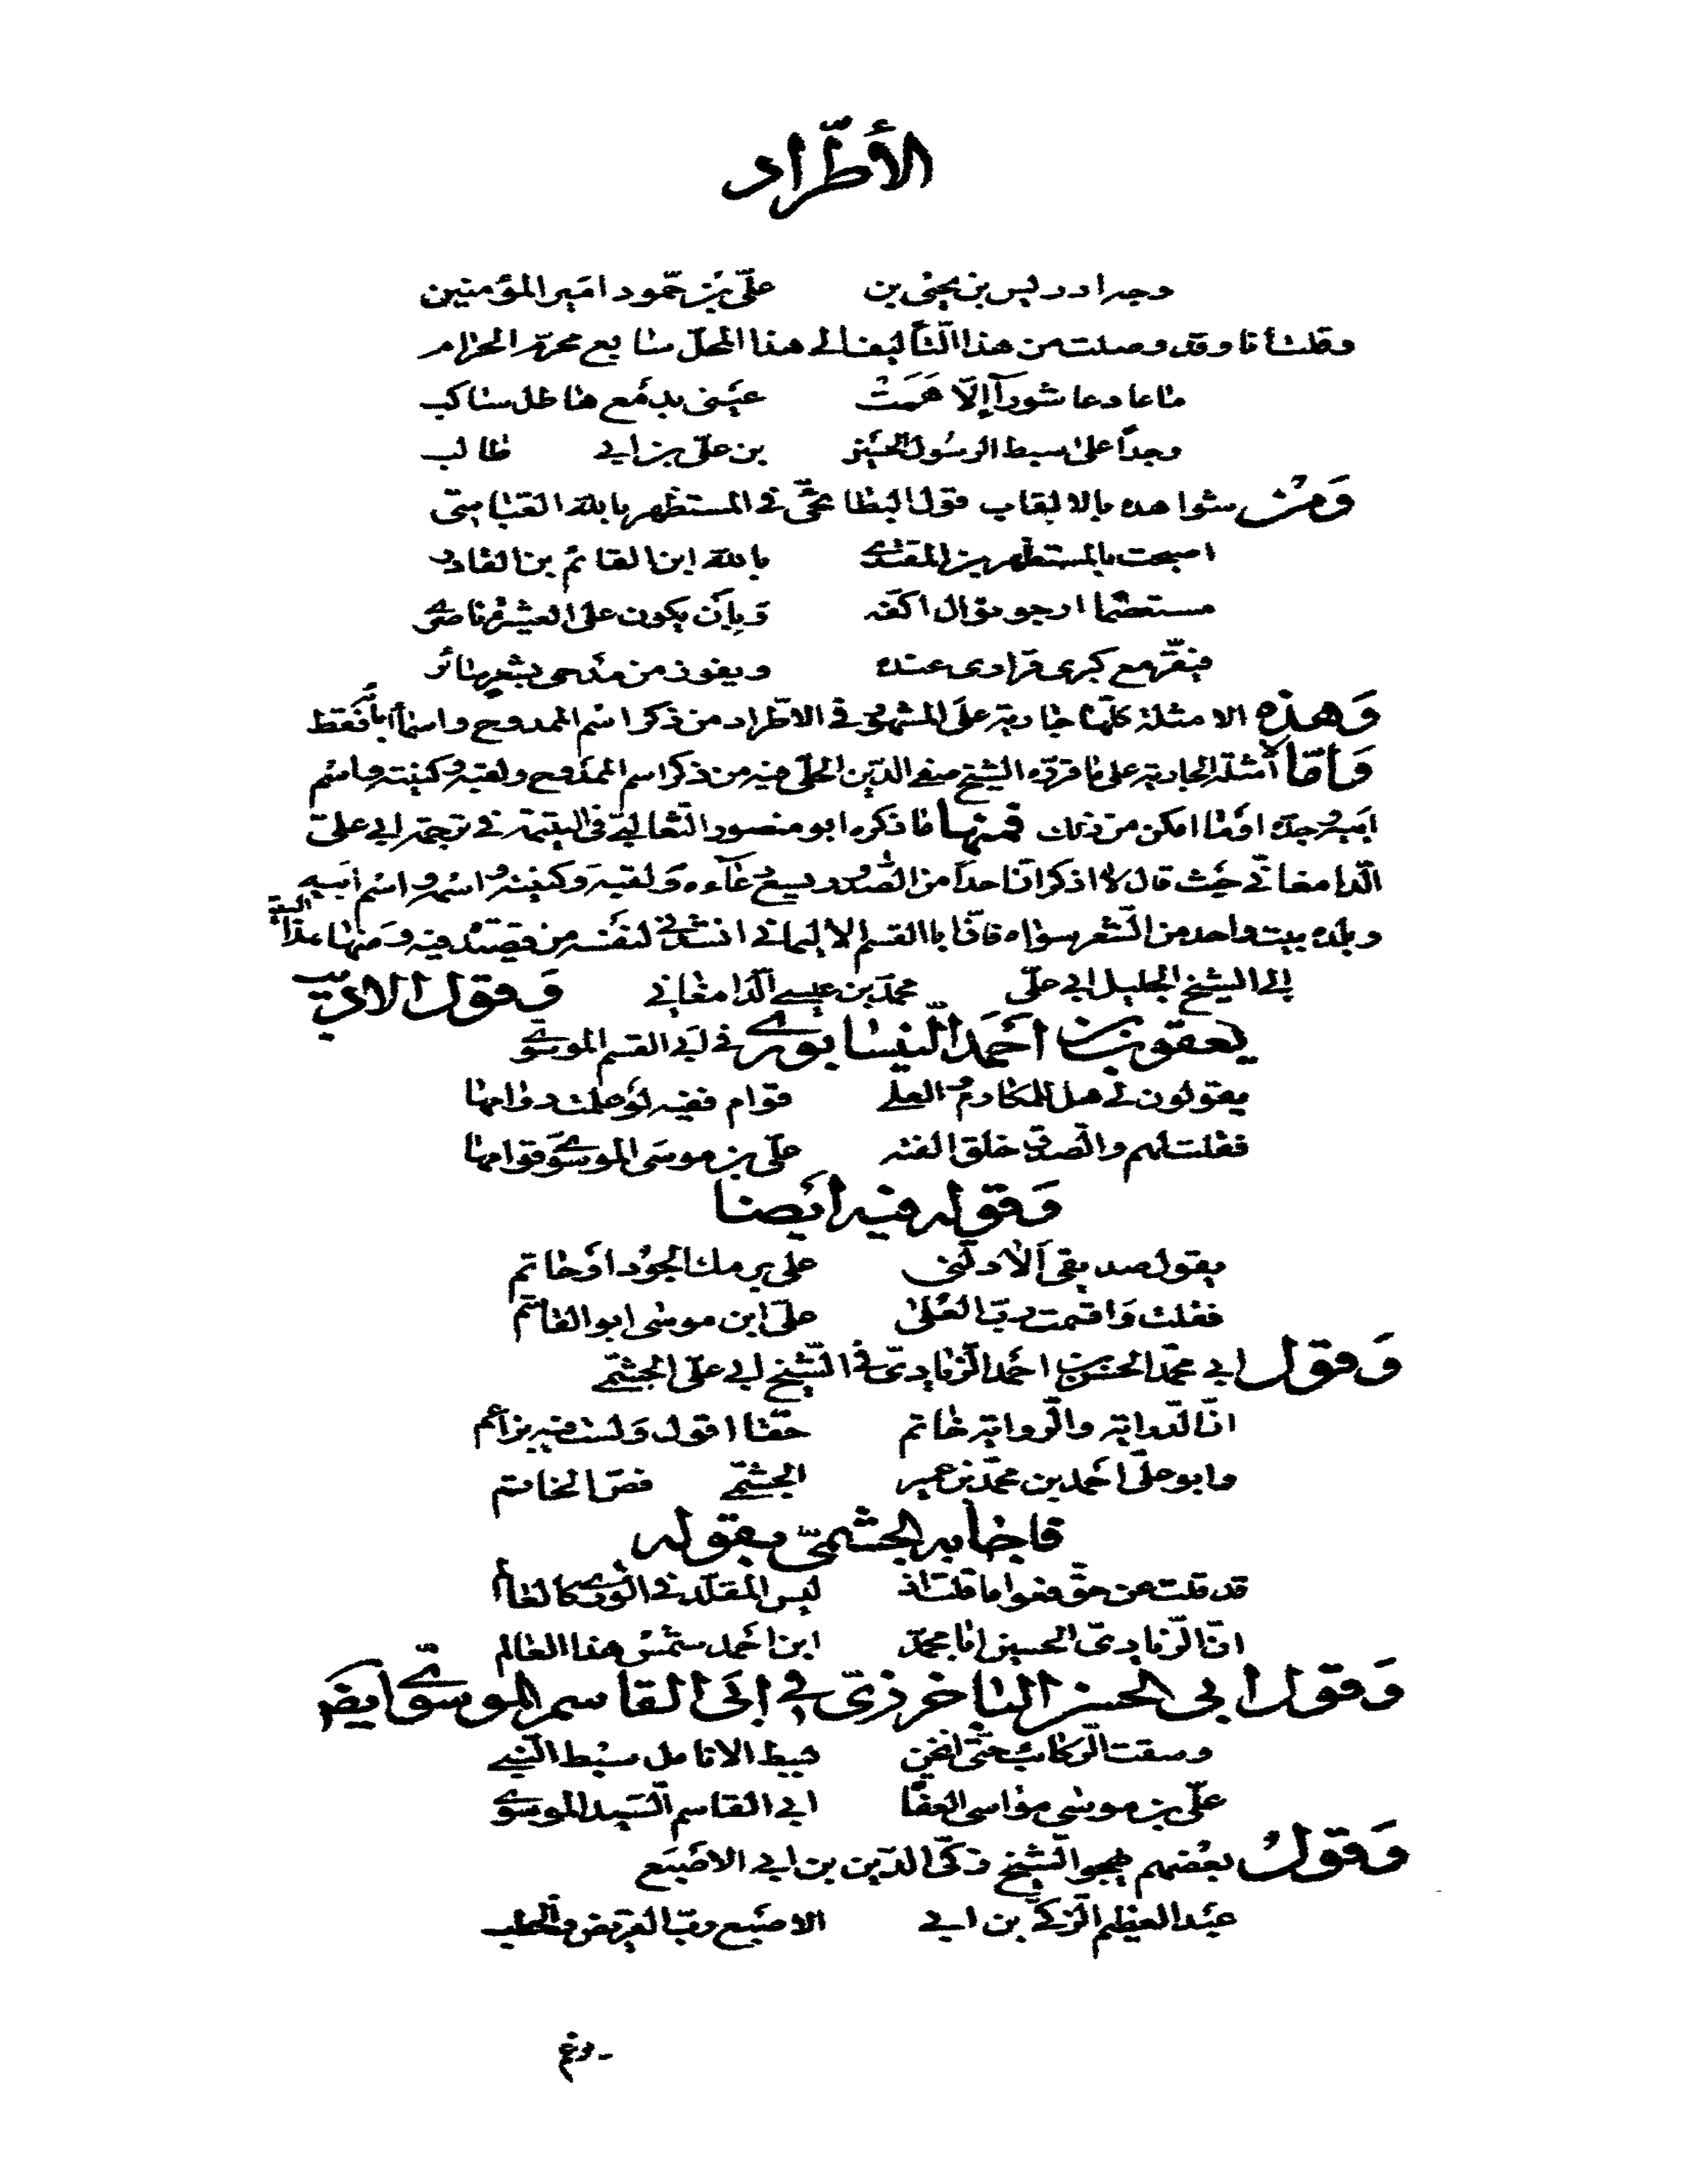 الأطّراد
وجه ادريس بن يحيى بن علىّ بن حمّود امير المؤمنين
وقلت أنا وقد وصلت من هذا التأليف الى هذا المحلّ سابع محرّم الحرام
ما عاد عاشوراً إلّا همت عينى بدمع هاطل ساكب
وجداً على سبط الرسول الحسين بن علىّ بن ابي طالب
ومن شواهده بالالقاب قول البطائحىّ في المستظهر بالله العبّاسىّ
اصبحت بالمستظهر بن المقتدى بالله ابن القائم بن القادر
مستعصما ارجو نوال اكفّه وبأن يكون على العشيرة ناصرى
فيقرّ مع كبرى قرارى عنده ويفوز من مدحى بشعر سائر
وهذه الامثلة كلّها جارية على المشهور في الاطّراد من ذكر اسم الممدوح واسماء آبائه فقط
وأمّا الأمثلة الجارية على ما قرّره الشيخ صفى الدّين الحلّى فيه من ذكر اسم الممدوح ولقبه وكنيته واسم
ابيه وجدّه او ما امكن من ذلك فمنها ما ذكره ابو منصور الثّعالبىّ فى اليتيمة في ترجمة ابي علىّ
الدّامغانىّ حيث قال لا اذكر انّ احداً من الصّدور يسع دعآءه ولقبه وكنيته واسمه واسم ابيه
وبلده بيت واحد من الشّعر سواه فانّ ابا القسم الاليمانى انشدنى لنفسه من قصيدة فيه ومنها هذا البيت
إلى الشيخ الجليل ابي علىّ محمّد بن عيسى الدّامغانى وقول الاديب
يعقوب بن أحمد النّيسابورى في ابي القسم الموسوىّ
يقولون لى هل للمكارم والعلى قوام ففيه لو علمت دوامها
فقلت لهم والصّدق خلق الفته علىّ بن موسى الموسوىّ قوامها
وقوله فيه أيضا
يقول صديقى ألا دلّنى على برمك الجود او حاتم
فقلت واقسمت ربّ العلى علىّ ابن موسى ابو القاسم
وقول ابي محمّد الحسن بن احمد الزّيادىّ في الشّيخ ابي علىّ الجشمىّ
انّ الدّراية والرّواية خاتم حقّا اقول ولست فيه بزاعم
وابو علىّ احمد بن محمّد بن الجشمىّ فصّ الخاتم
فاجابه الجشمىّ بقوله
قد قلت عن حقّ ليس المقلّد فى الورى كالعالم
انّ الزّيادىّ الحسين ابا محمّد ابن احمد شمس هذا العالم
وقول ابى الحسن الباخرزىّ في ابى القاسم الموسوىّ ايضا
وسقت الرّكاب حتّى انخن سبيط الانامل سبط النّبى
علىّ بن موسى مواسى العفاة ابى القاسم السّيد الموسوى
وقول بعضهم يهجو الشّيخ زكّى الدّين بن ابى الاصبع
عبد العظيم الزّكى بن ابى الاصبع ربّ القريض والخطب